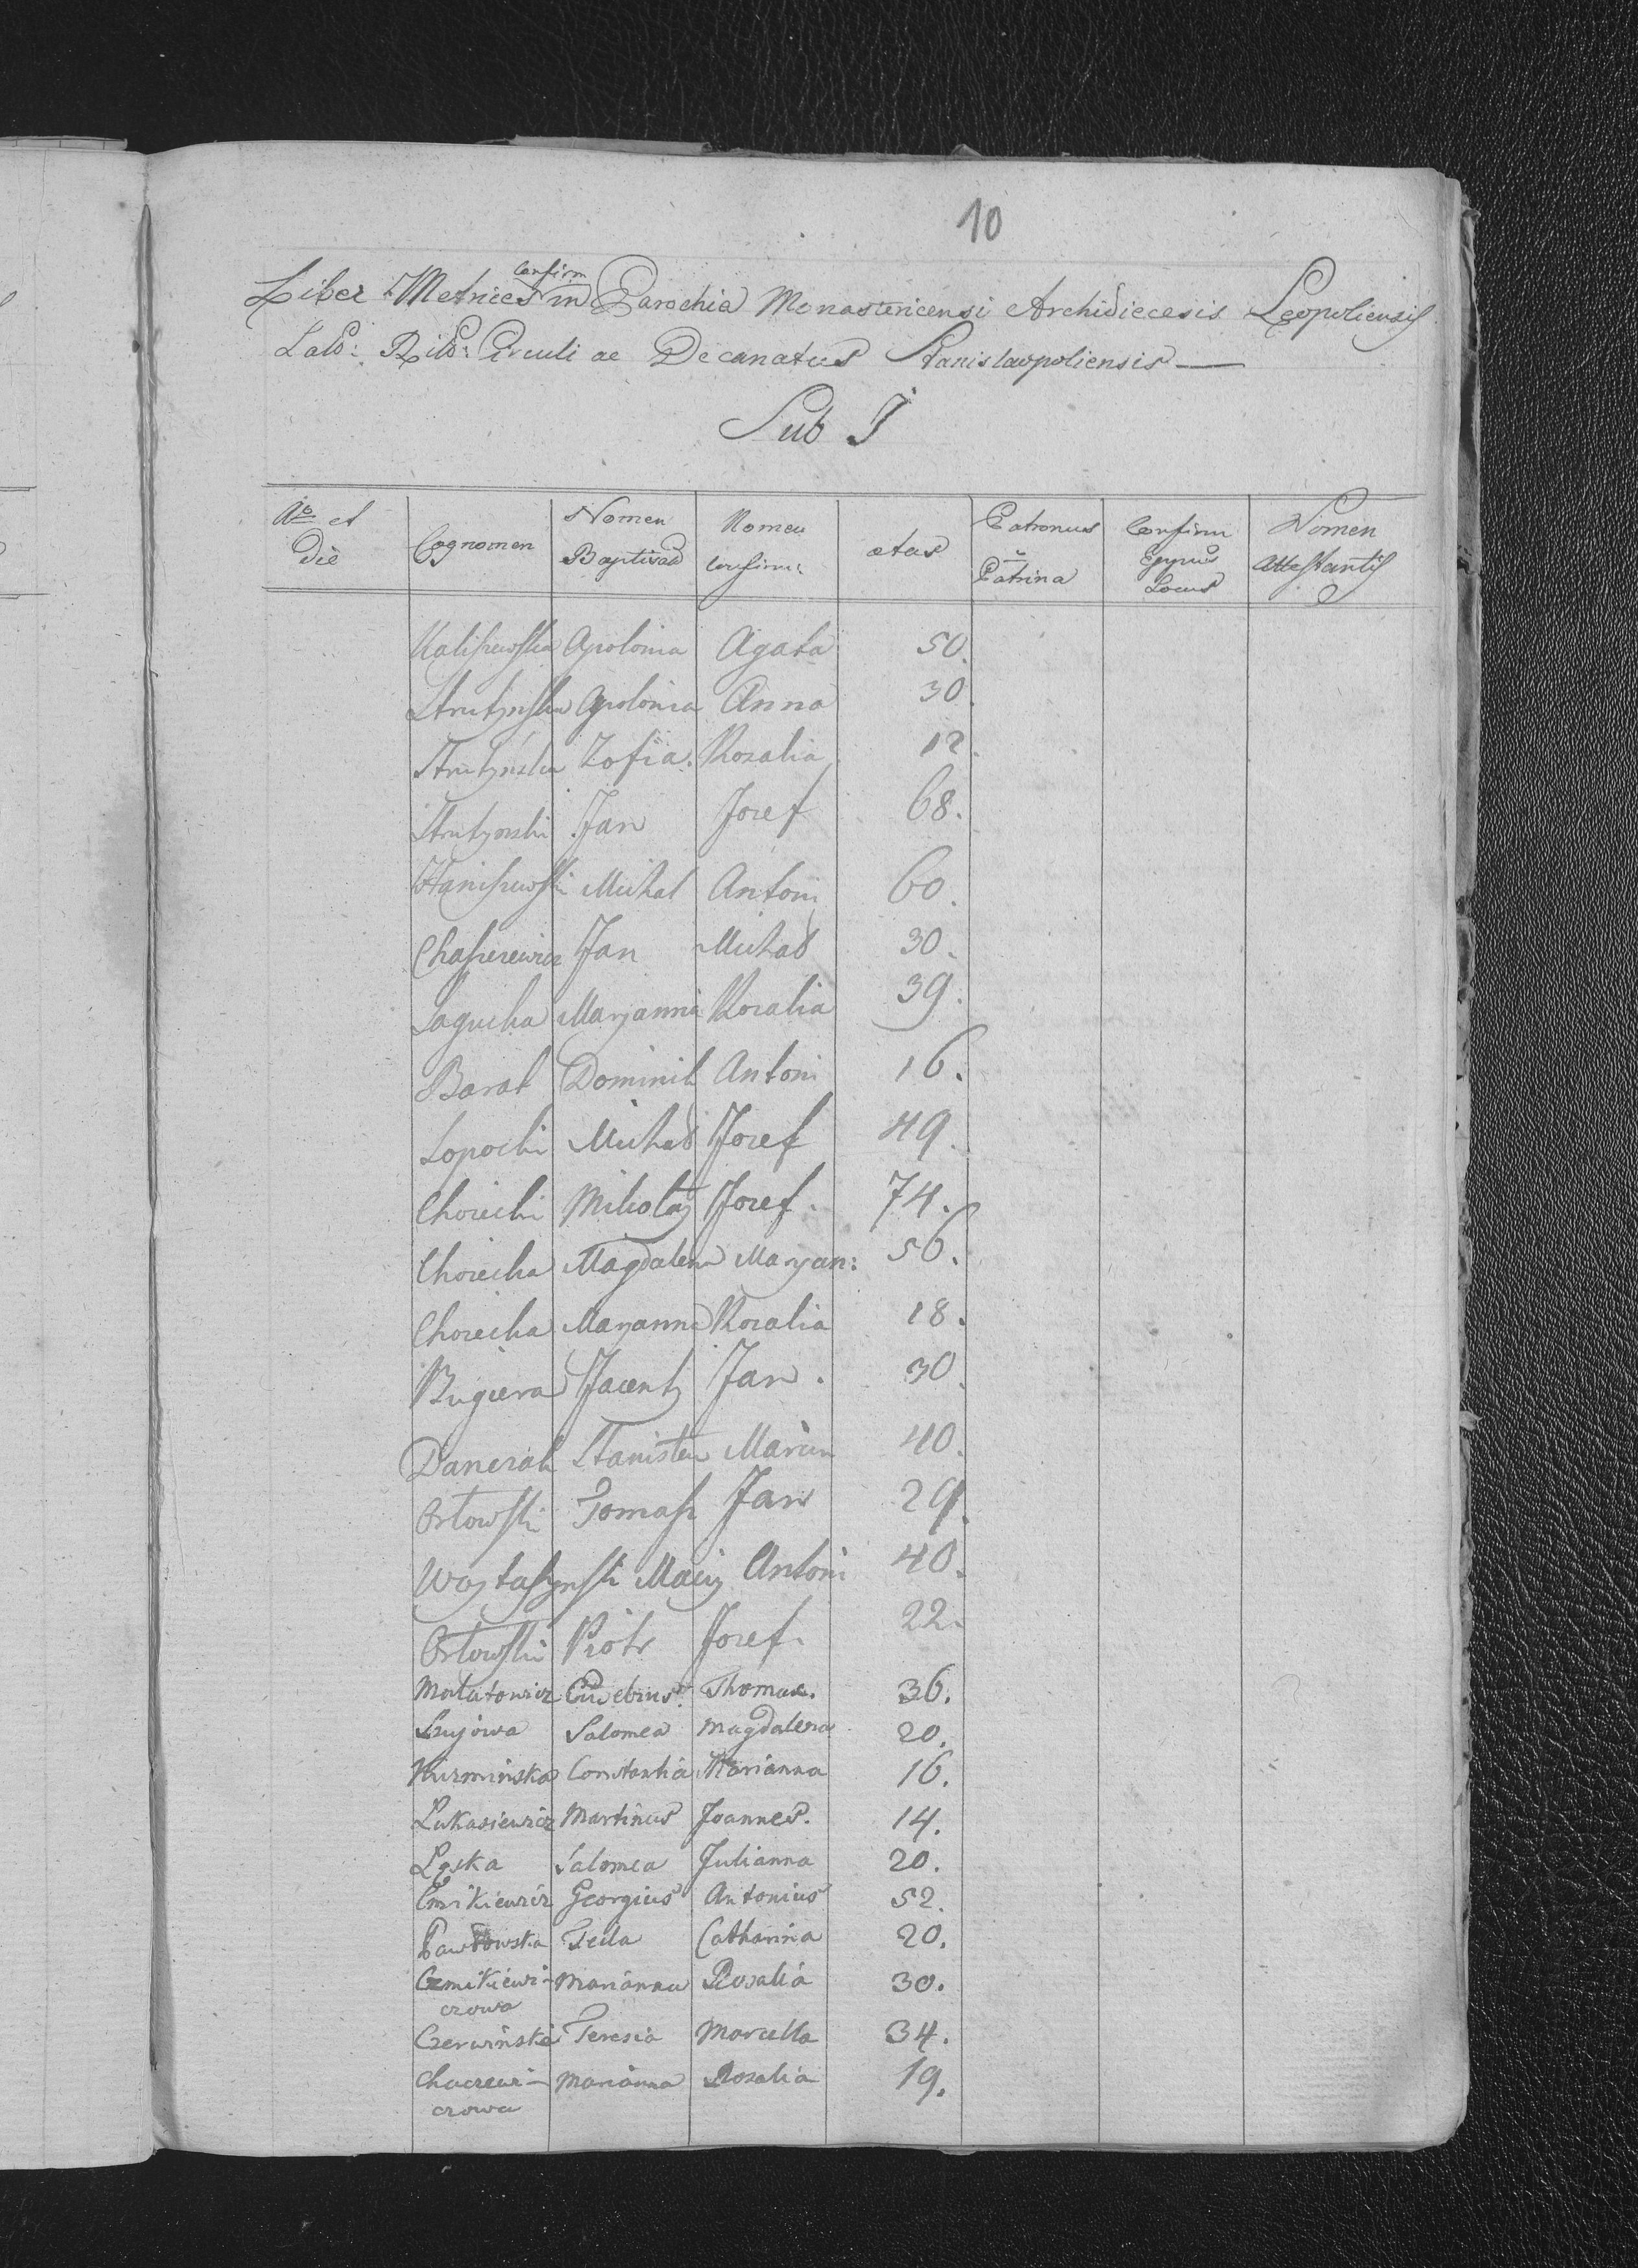 10
Liber Metrices Confirm in Parochia Monastericensi Archidiecesis Leopoliensis
Lab: Rit: Circuli ac Decanatus Stanislaopoliensis —
Sub I
Ao et Die Cognomen Nomen Baptisad Nomen confirm: etas Patronus Patrina Confirm Locus Nomen Attestantis
Kaliszewska Apolonia Agata 50.
Strutynska Apolonia Anna 30.
Strutynska Zofia. Rozalia 12.
Strutynski Jan Jozef 68.
Staniszewski Michal Antoni 60.
Chaszerewicz Jan Michał 30.
Sagucka Maryanna Rozalia 39.
Barat Dominik Antoni 16.
Lopocki Michał Jozef 49.
Chorecki Mikołaj Jozef. 74.
Chorecka Magdalena Maryan: 56.
Chorecka Maryanna Rozalia 18.
Bugiera Jacenty Jan. 30.
Danerak Stanisław Marcin 40.
Orłowski Tomasz Jan 29.
Woytaszynski Maciy Antoni 40.
Orłowski Piotr Jozef. 22.
Thomas. 36.
Szujowa Salomea Magdalena 20.
Kurminska Constantia Marianna 16.
Lukasiewicz Martinus Joannes. 14.
Łęska Salomea Julianna 20.
Cmikiewicz Georgius Antonius 52.
Pawłowska Tecla Catharina 20.
Czmikiewi- Marianna Rosalia 30.
czowa
Czerwinska Teresia Marcella 34.
Chacrewi- Marianna Rosalia 19.
czowa